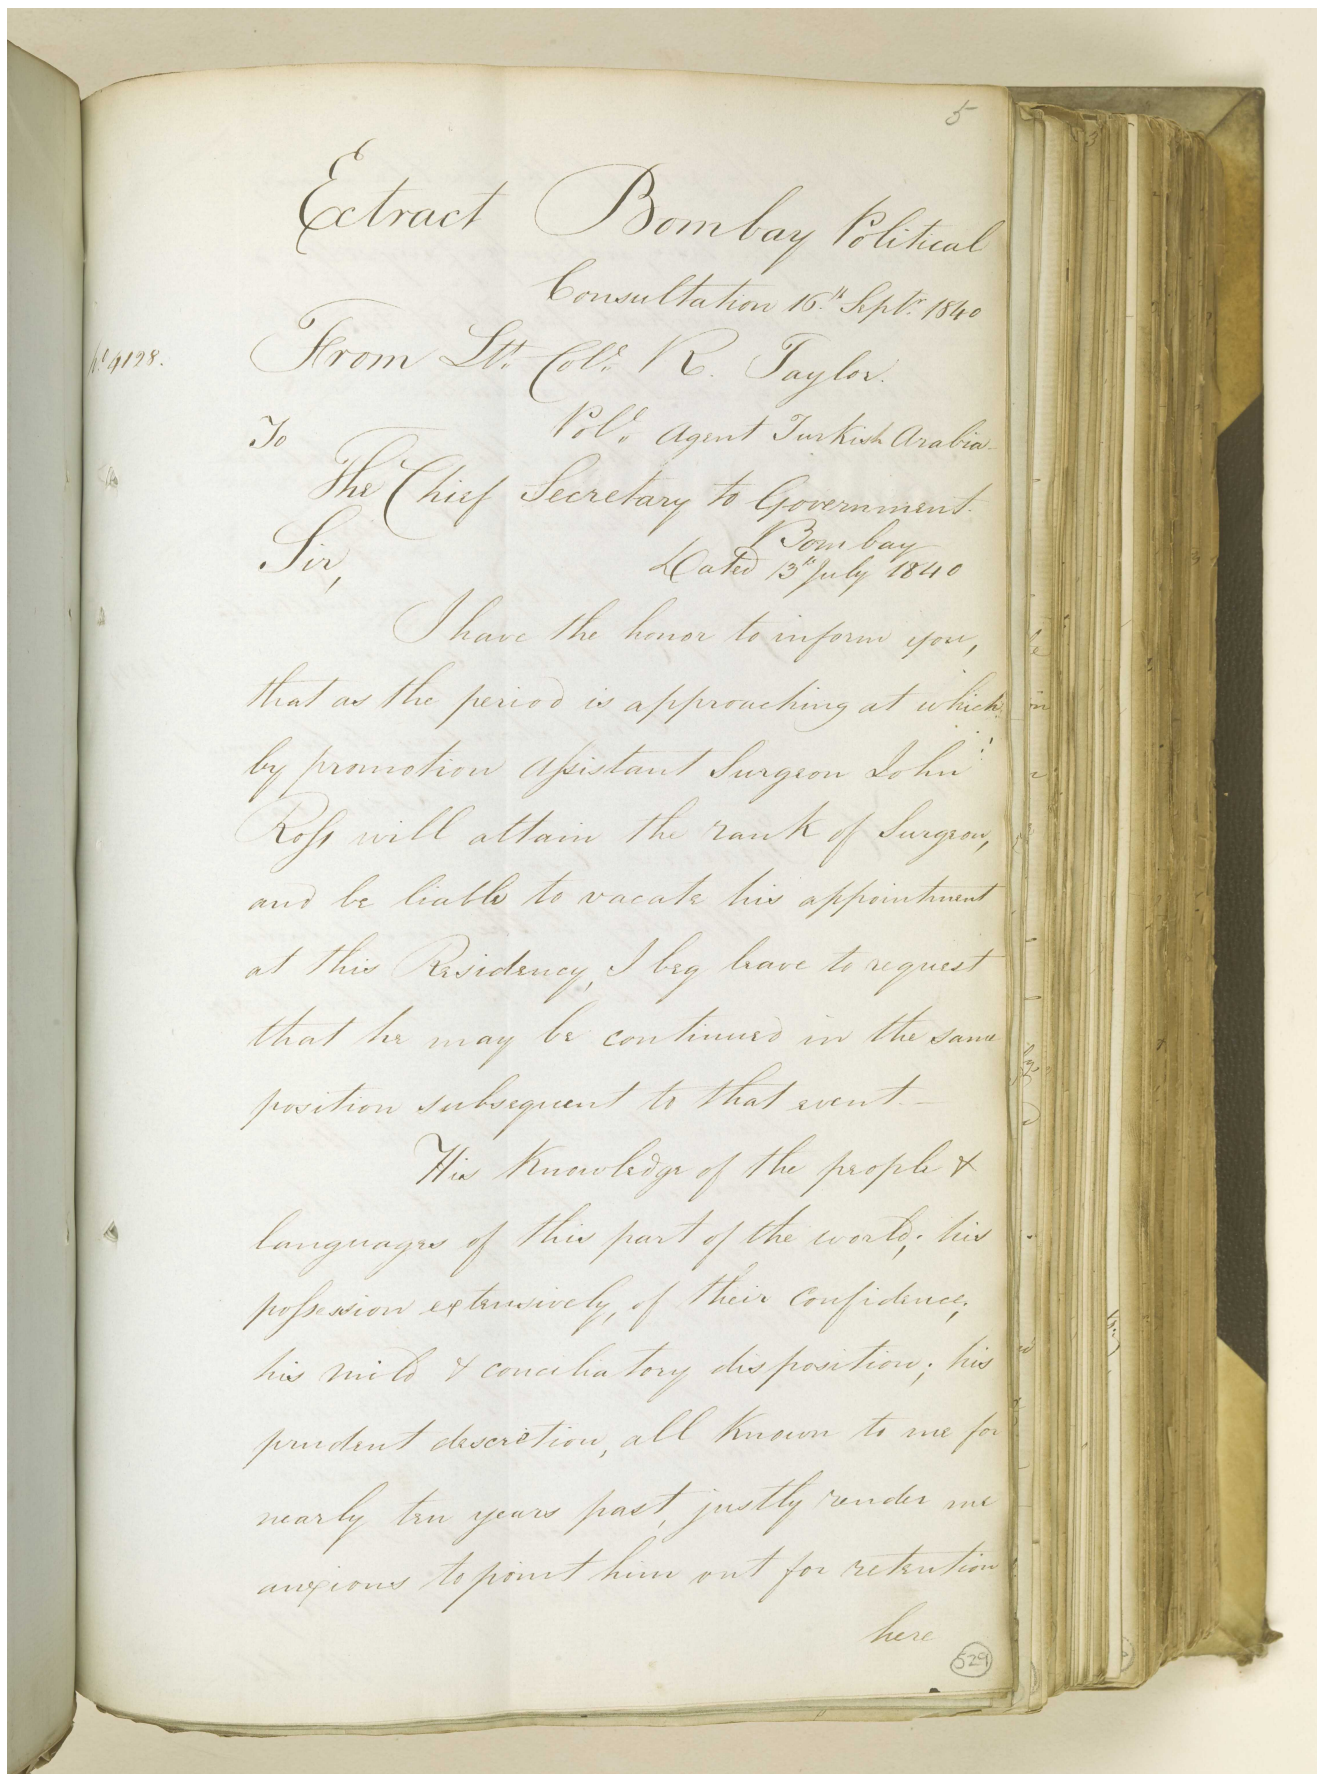 5
Extract Bombay Political
Consultation 16th Septr. 1840
No 4198.
From Lt. Coll. R. Taylor.
Poll. Agent Turkish Arabia
To
The Chief Secretary to Government.
Bombay
Sir,
Dated 13th July 1840
I have the honor to inform you,
that as the period is approaching at which
by promotion Assistant Surgeon John
Ross will attain the rank of Surgeon,
and be liable to vacate his appointment
at this Residency, I beg leave to request
that he may be continued in the same
position subsequent to that event.—
His Knowledge of the people &
languages of this part of the world; his
possession extensively, of their confidence;
his mild & conciliatory disposition; his
prudent descretion, all Known to me for
nearly ten years past, justly render me
anxious to point him out for retention
here
529